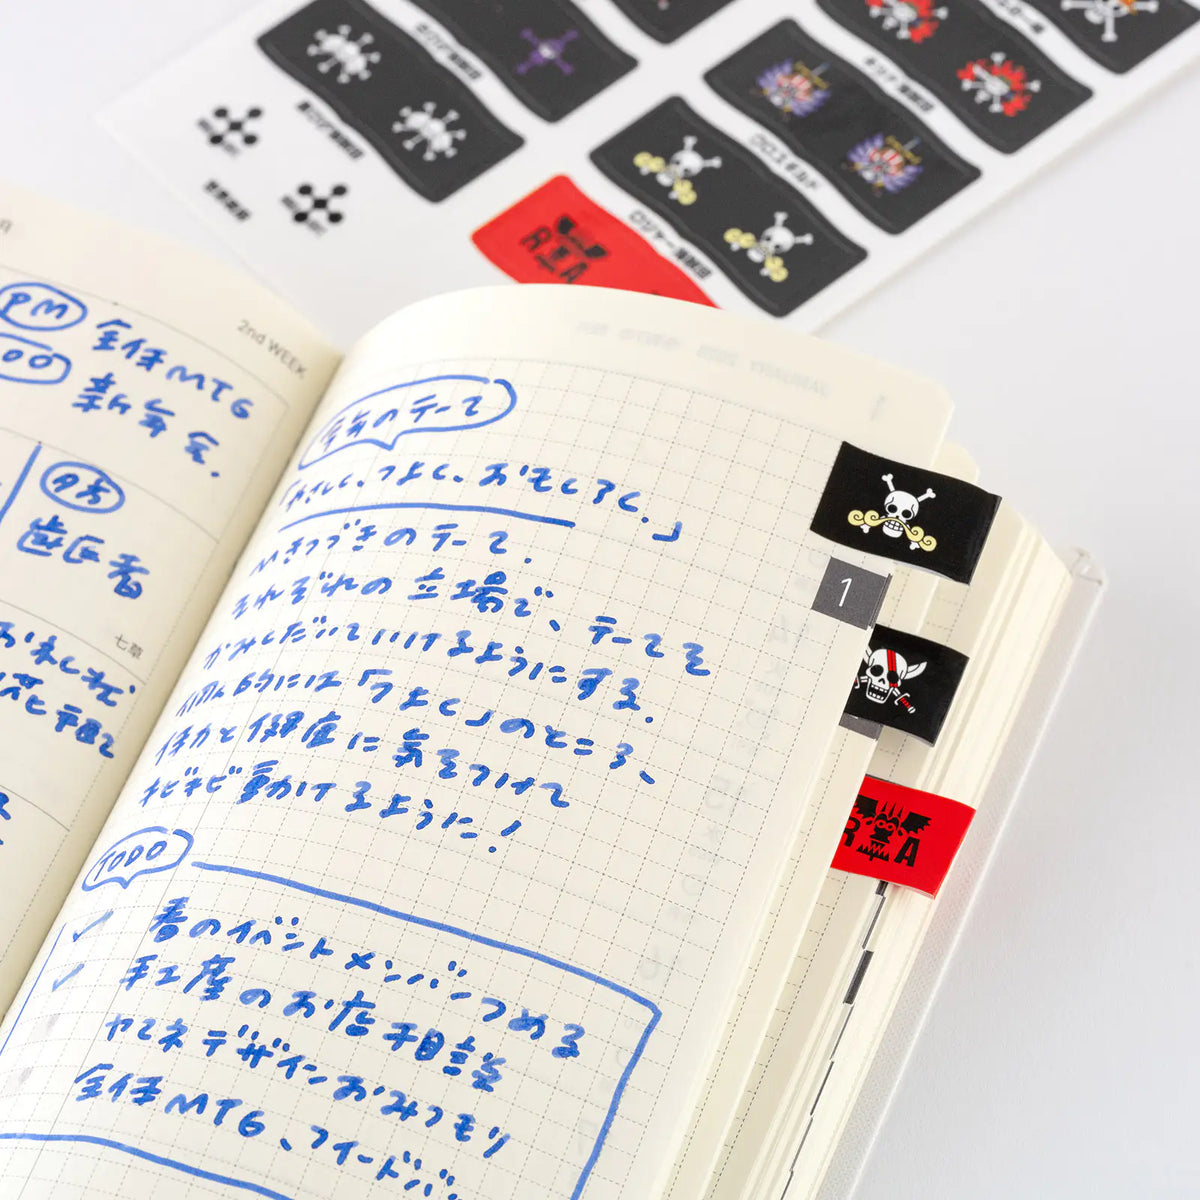 キッド海賊団
クロスギルド
ロジャー海賊団
世界政府
R A
2nd WEEK
PM
全体MTG
新年会.
夕方
歯医者
七草
今年のテーマ
「やさしく、つよく、おもしろく。」
Mきつづきのテーマ.
それぞれの立場で、テーマを
かみくだいていけるようにする.
個人的には「つよく」のところ、
体力と健康に気をつけて
キビキビ動けるように!
TODO
✓ 春のイベントメンバーつめる
✓ 手土産のお店相談
ヤマネデザインおみつもり
全体MTG、フィードバ
1
R A